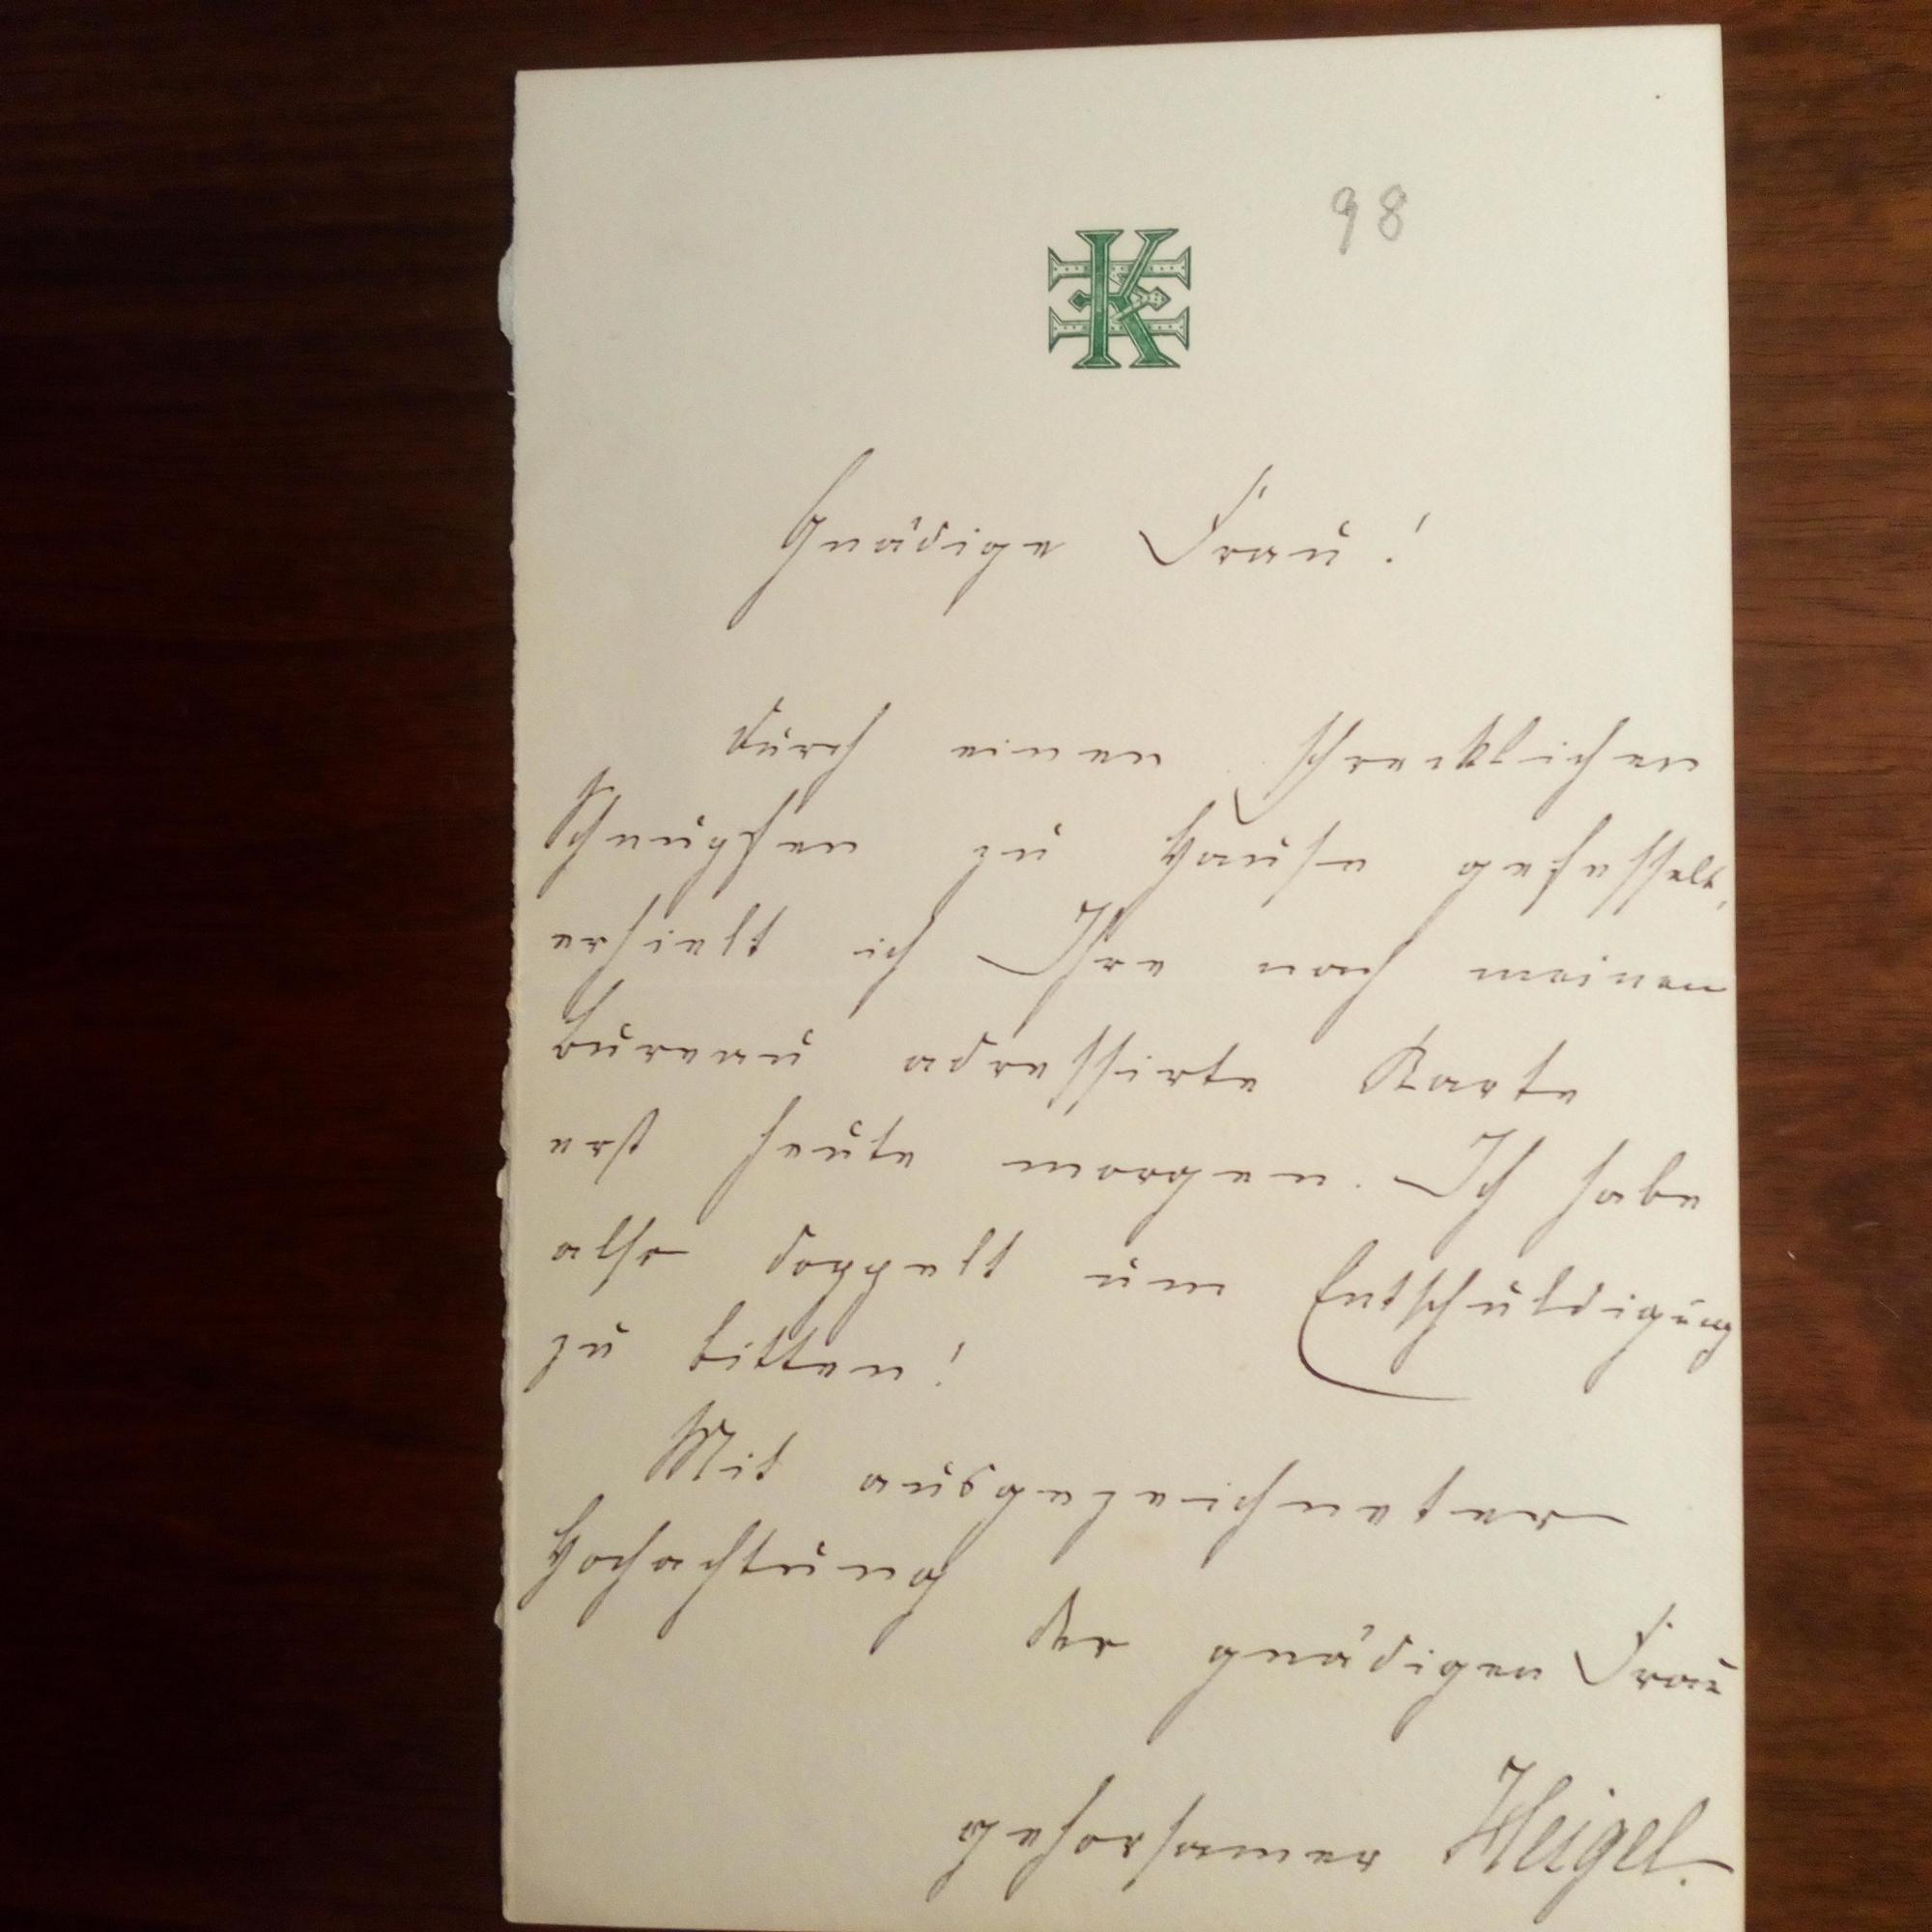 98
K
Gnädige Frau!
durch einen schrecklichen
Schnupfen zu Hause gefesselt,
erhielt ich Ihre nach meinen
bureau adressirte Karte
erst heute morgen. Ich habe
also doppelt um Entschuldigung
zu bitten!
Mit ausgezeichneter
Hochachtung
der gnädigen Frau
gehorsamer Heigel.